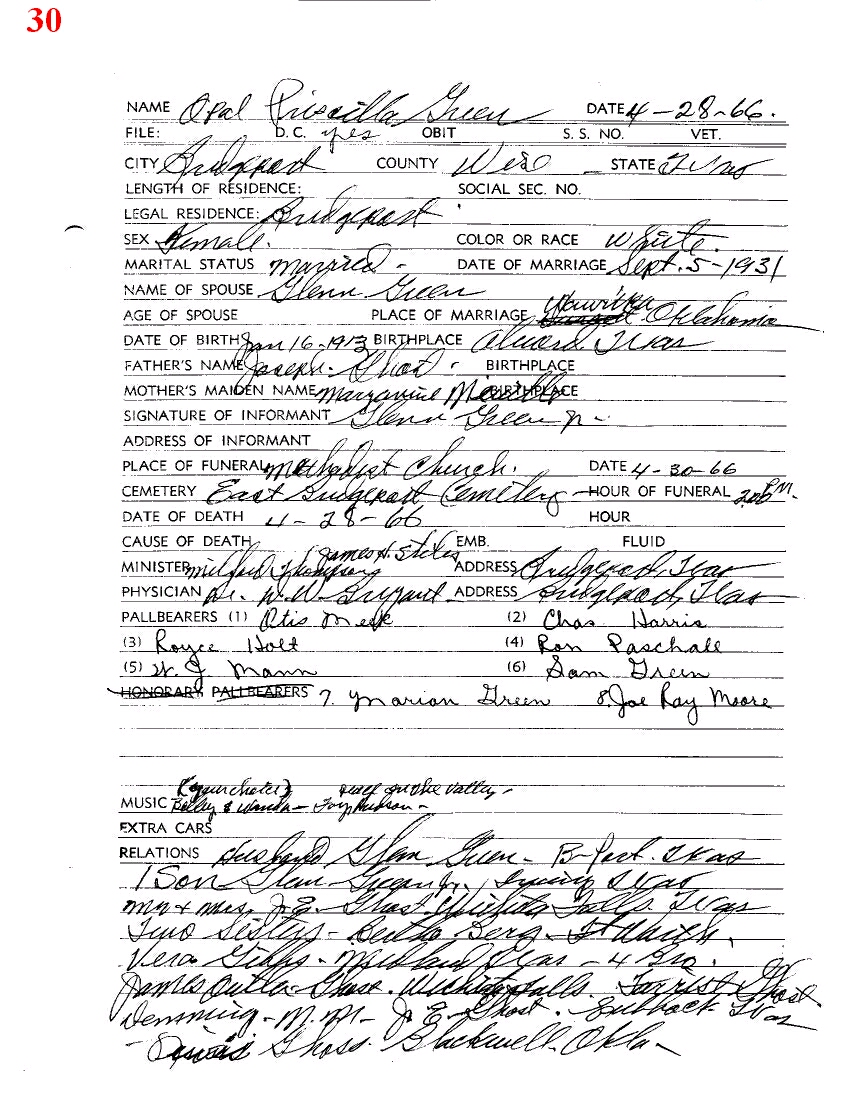 30
NAME Opal Priscilla Green DATE 4-28-66.
FILE: D.C. yes OBIT S. S. NO. VET.
CITY Bridgeport COUNTY Wise STATE Texas
LENGTH OF RESIDENCE: SOCIAL SEC. NO.
LEGAL RESIDENCE: Bridgeport
SEX Female. COLOR OR RACE White.
MARITAL STATUS married - DATE OF MARRIAGE Sept. 5-1931
NAME OF SPOUSE Glenn Green
AGE OF SPOUSE PLACE OF MARRIAGE Oklahoma
DATE OF BIRTH Jan 16-1913 BIRTHPLACE Alvord Texas
FATHER'S NAME Joseph Ghost BIRTHPLACE
MOTHER'S MAIDEN NAME BIRTHPLACE
SIGNATURE OF INFORMANT Glenn Green Jr -
ADDRESS OF INFORMANT
PLACE OF FUNERAL Methodist Church. DATE 4-30-66
CEMETERY East Bridgeport Cemetery - HOUR OF FUNERAL 2:00 PM.
DATE OF DEATH 4-28-66 HOUR
CAUSE OF DEATH EMB. FLUID
James H. Stiles
MINISTER Milford Thompson ADDRESS Bridgeport, Texas
PHYSICIAN Dr. ADDRESS Bridgeport, Texas
PALLBEARERS (1) Otis Meek (2) Chas Harris
(3) Royce Holt (4) Ron Paschall
(5) W. J. Mann (6) Sam Green
HONORARY PALLBEARERS 7. Marion Green 8. Joe Ray Moore
peace in the valley -
MUSIC Billy & Wanda -
EXTRA CARS
RELATIONS Husband Glen Green - B-Port. Texas
1 Son Glenn Green Jr., Irving Texas
Mr & Mrs. J.E. Ghost. Wichita Falls. Texas
Two Sisters - Bertha Berg - Ft Worth.
Vera Gibbs - Midland Texas - 4 Bro.
James Ghost. Wichita Falls. Forrist Ghost
Demming - N.M. - J. E. Ghost. Lubbock Texas
Ghost. Blackwell. Okla -